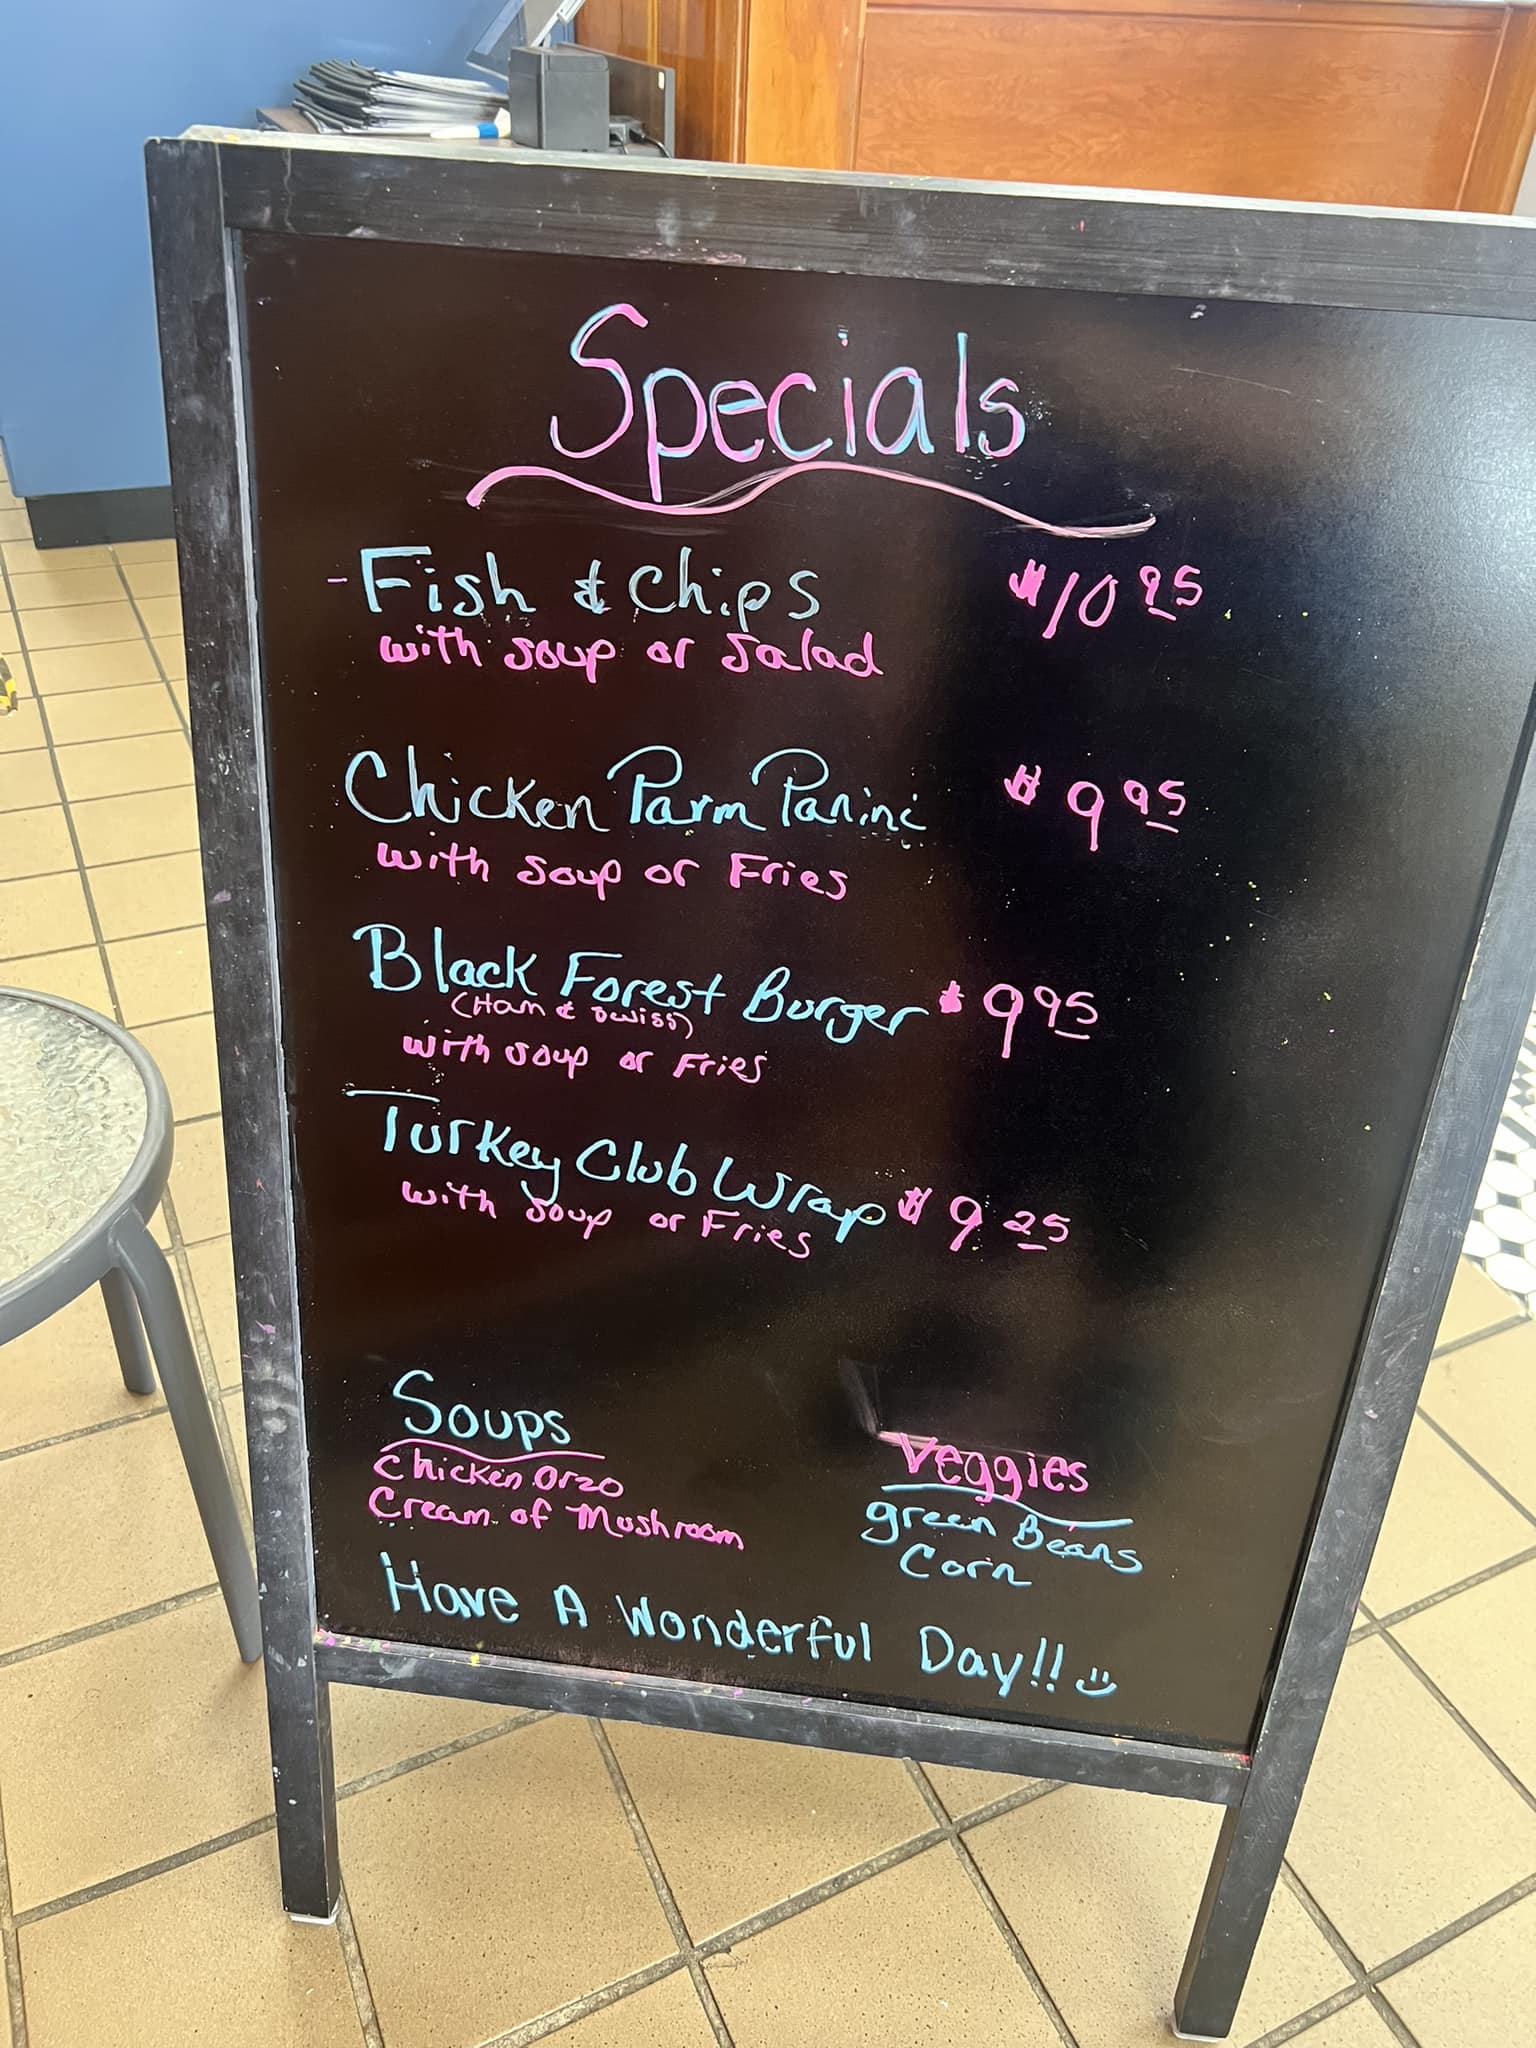 Specials
- Fish & Chips $10 95
with soup or Salad
Chicken Parm Panini $9 95
with soup or Fries
Black Forest Burger $9 95
(Ham & swiss)
with soup or Fries
Turkey Club Wrap $9 25
with soup or Fries
Soups
Chicken Orzo
Cream of Mushroom
Veggies
green Beans
Corn
Have A Wonderful Day!!